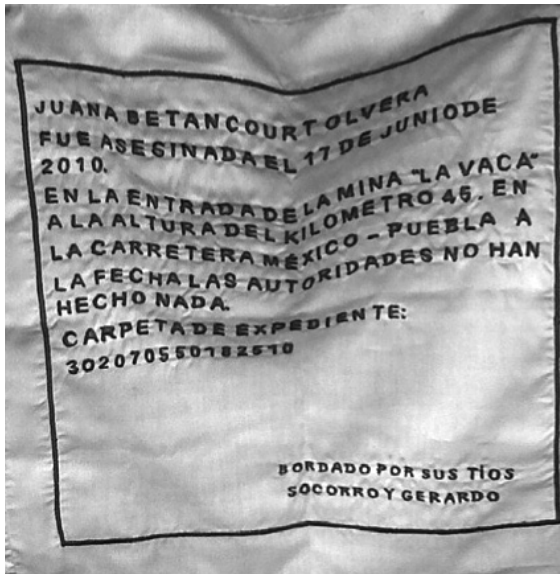 JUANA BETANCOURT OLVERA
FUE ASESINADA EL 17 DE JUNIO DE
2010.
EN LA ENTRADA DE LA MINA "LA VACA"
A LA ALTURA DEL KILOMETRO 45. EN
LA CARRETERA MÉXICO - PUEBLA A
LA FECHA LAS AUTORIDADES NO HAN
HECHO NADA.
CARPETA DE EXPEDIENTE:
302070550182610
BORDADO POR SUS TÍOS
SOCORRO Y GERARDO